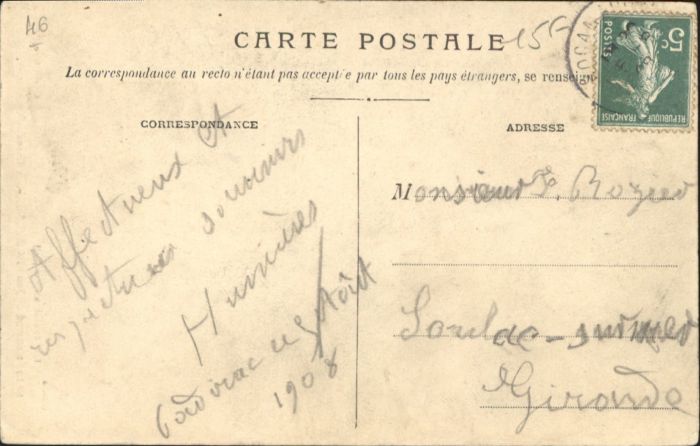 46
CARTE POSTALE
15F
La correspondance au recto n'étant pas acceptée par tous les pays étrangers, se renseign
5c
POSTES
REPUBLIQUE FRANÇAISE
CORRESPONDANCE
Affectueux et
respectueux souvenirs
Humières
Padirac le 9 Août
1908
ADRESSE
Monsieur Rozier
Soulac-sur-mer
Gironde